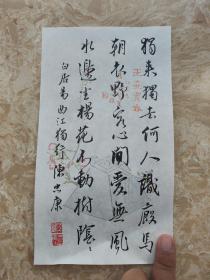 獨来獨去何人識廄馬
朝衣野客心閒愛無風
水邊坐楊花不動樹陰々
白居易曲江獨行 陳忠康